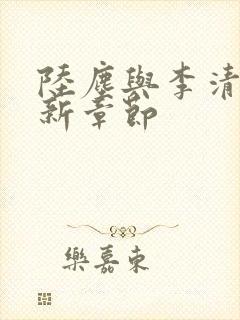 陸塵與李清
新章節
樂嘉東